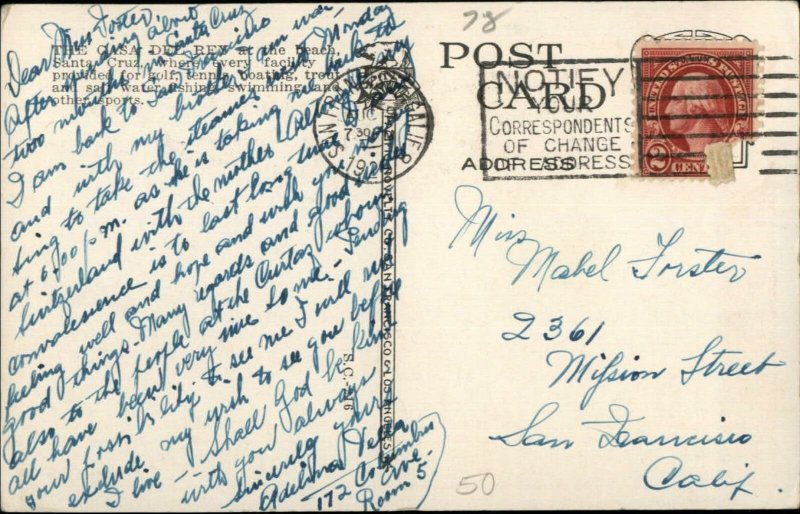 78
THE CASA DEL REY at the beach,
Santa Cruz, where every facility is
provided for golf, tennis, boating, trout
and salt water fishing, swimming and
other sports.
Dear Miss Forster
After passing about
two months in Santa Cruz
I am back to San Francisco
and with my brother am wai-
ting to take the steamer Monday
at 6/00 p.m. as he is taking me back to
Switzerland with the mother. Altough my
convalescence is to last long time I am
feeling well and hope and wish you very
good things. Many regards and good wishes
also to the people at the Curtaz whom
all have been very nice to me. Sending
your possibility to see me I will not
exclude my wish to see you before
I live - Shall God be kind
with you always
Sincerely yours
Adelina
172 Columbus
Ave.
Room 5
S.C. 16
SAN FRANCISCO CALIF.
7 30
POST
CARD
ADDRESS
NOTIFY
YOUR
CORRESPONDENTS
OF CHANGE
OF ADDRESS
2 CENTS
Miss
Mabel Forster
2361
Mission Street
San Francisco
Calif.
50